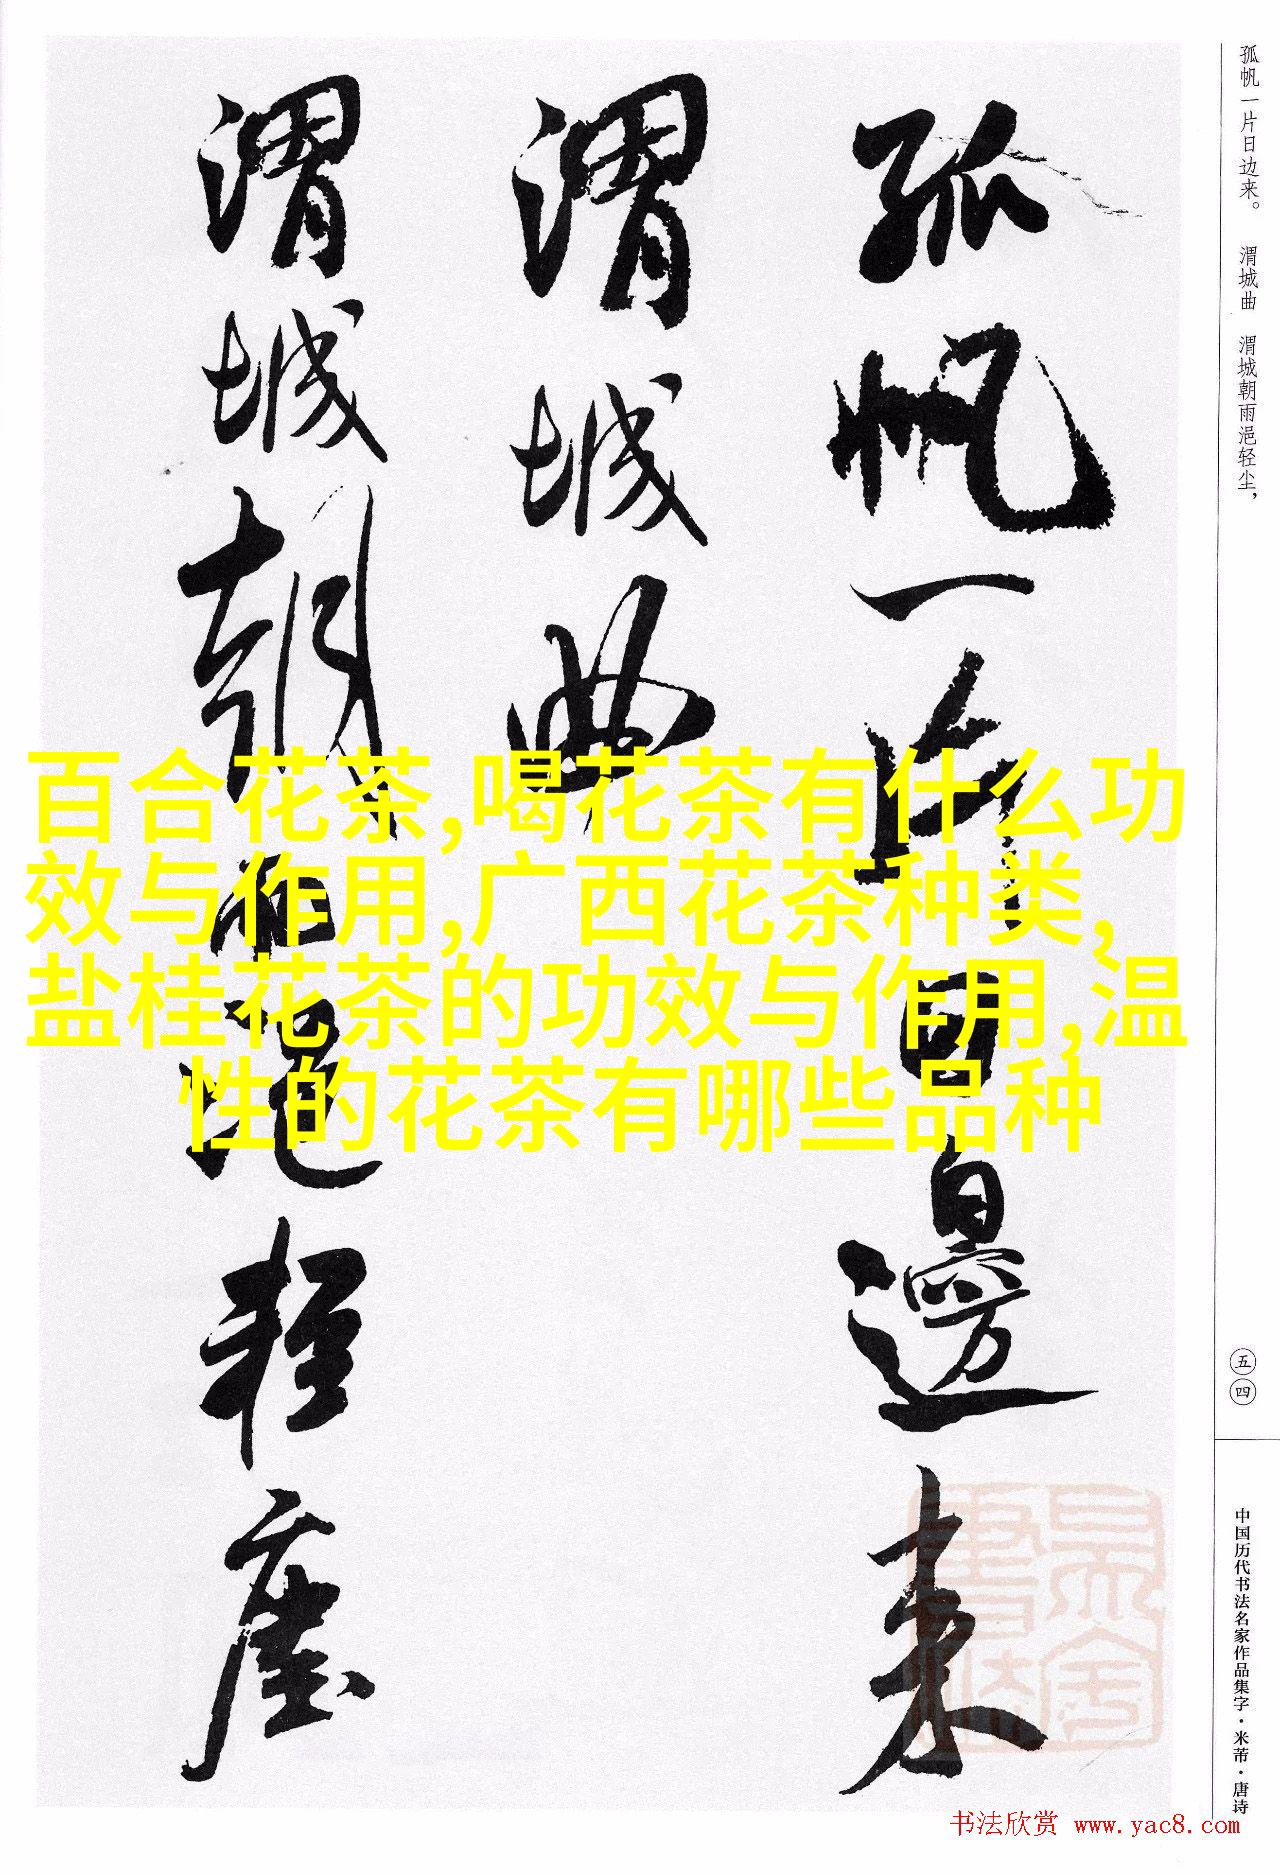 孤帆一片日边来。 渭城曲 渭城朝雨浥轻尘，
五四
中国历代书法名家作品集字·米芾·唐诗
孤帆一片日邊来
渭城曲
渭城朝雨浥輕塵
百合花茶,喝花茶有什么功
效与作用,广西花茶种类,
盐桂花茶的功效与作用,温
性的花茶有哪些品种
书法欣赏 www.yac8.com